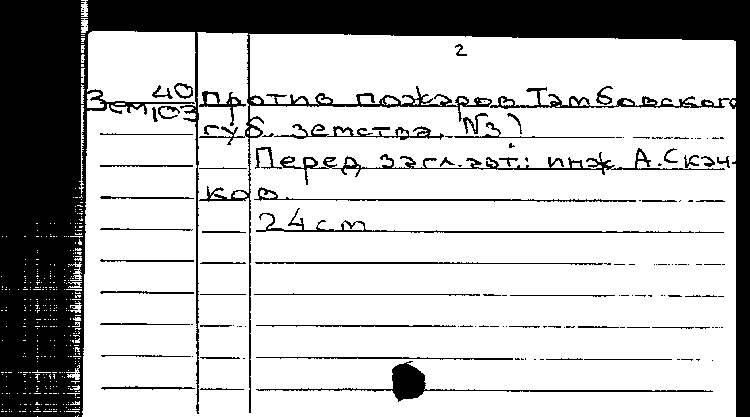 2
40
Зем 103
против пожаров Тамбовского
губ. земства. №3).
Перед загл. авт.: инж. А. Скач-
ков.
24 cm